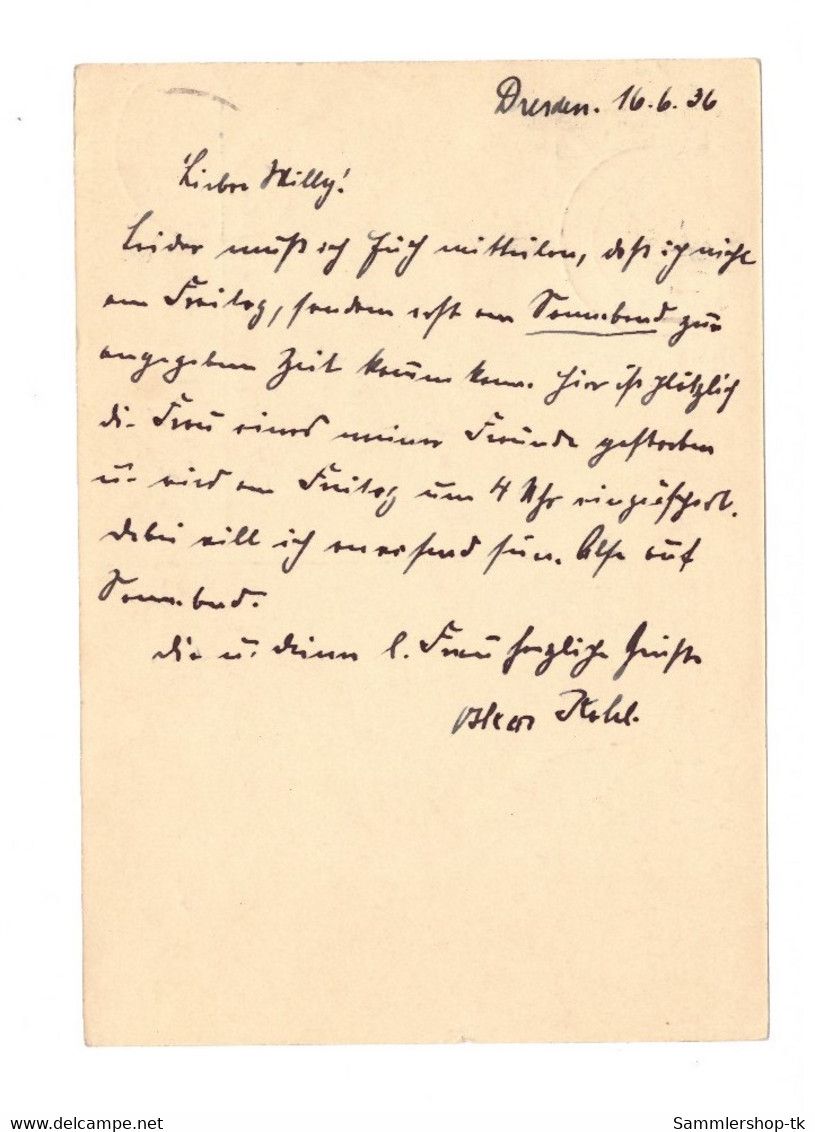 Dresden. 16.6.36
Lieber Willy!
Leider muß ich Euch mitteilen, daß ich nicht
am Freitag, sondern erst am Sonnabend zur
angegebenen Zeit kommen kann. Hier ist plötzlich
die Frau eines meiner Freunde gestorben
u. wird am Freitag um 4 Uhr eingeäschert.
Dabei will ich anwesend sein. Also auf
Sonnabend.
Dir u. Deiner l. Frau herzliche Grüße
Oskar
hippostcard.com
Sammlershop-tk